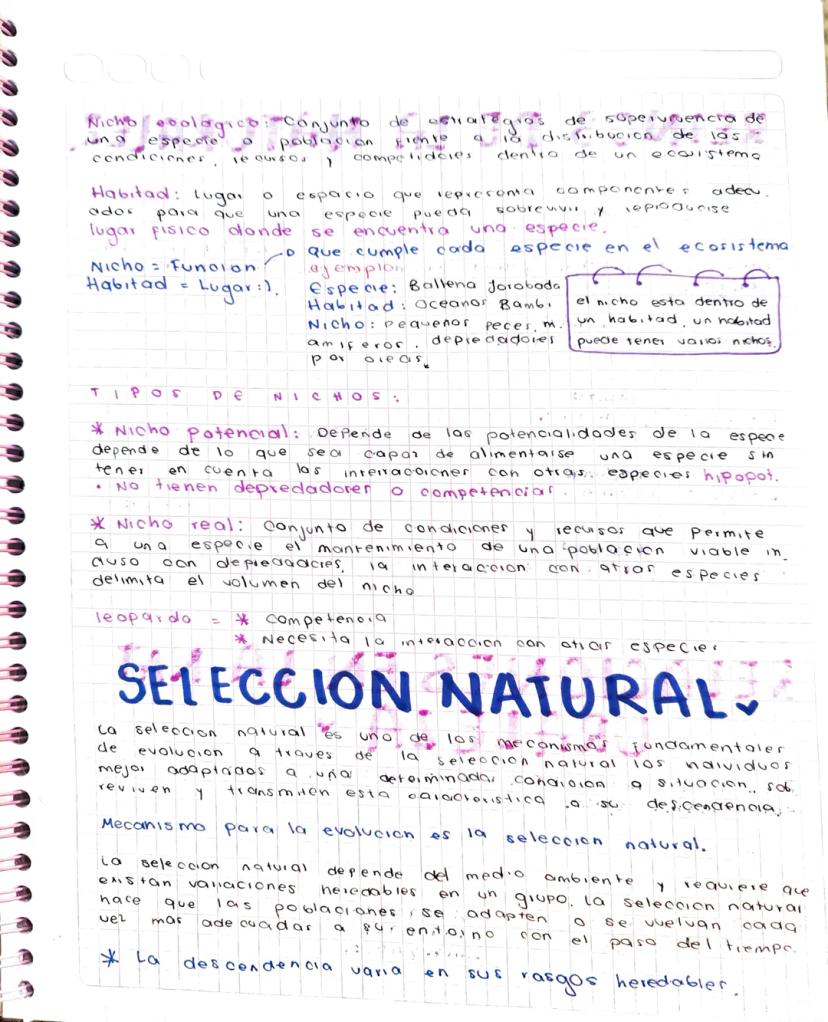 Nicho ecologico: Conjunto de estrategias de supervivencia de
una especie o poblacion frente a la distribucion de las
condiciones, recursos y competidores dentro de un ecosistema
Habitad: lugar o espacio que representa componentes adecu.
ados para que una especie pueda sobrevivir y reproducirse
lugar fisico donde se encuentra una especie.
que cumple cada especie en el ecosistema
Nicho = Funcion
Habitad = Lugar :).
ejemplo:
Especie: Ballena Jorobada
Habitad: Oceanos Bambi
Nicho: pequeños peces, m.
amiferos. depredadores
por oreas.
el nicho esta dentro de
un habitad, un habitad
puede tener varios nichos.
TIPOS DE NICHOS:
* Nicho potencial: Depende de las potencialidades de la especie
depende de lo que sea capaz de alimentarse una especie sin
tener en cuenta las interracciones con otras especies hipopot.
• No tienen depredadores o competencias.
* Nicho real: Conjunto de condiciones y recursos que permite
a una especie el mantenimiento de una poblacion viable in.
cluso con depredadores, la interaccion con otras especies
delimita el volumen del nicho
leopardo = * competencia
* Necesita la interaccion con otras especies
SELECCION NATURAL
La seleccion natural es uno de los mecanismos fundamentales
de evolucion a traves de la seleccion natural los individuos
mejor adaptados a una determinada condicion o situacion, sob.
reviven y transmiten esta caracteristica a su descendencia.
Mecanismo para la evolucion es la seleccion natural.
La seleccion natural depende del medio ambiente y requiere que
existan variaciones heredables en un grupo. La seleccion natural
hace que las poblaciones se adapten o se vuelvan cada
vez mas adecuadas a su entorno con el paso del tiempo.
* La descendencia varia en sus rasgos heredables.